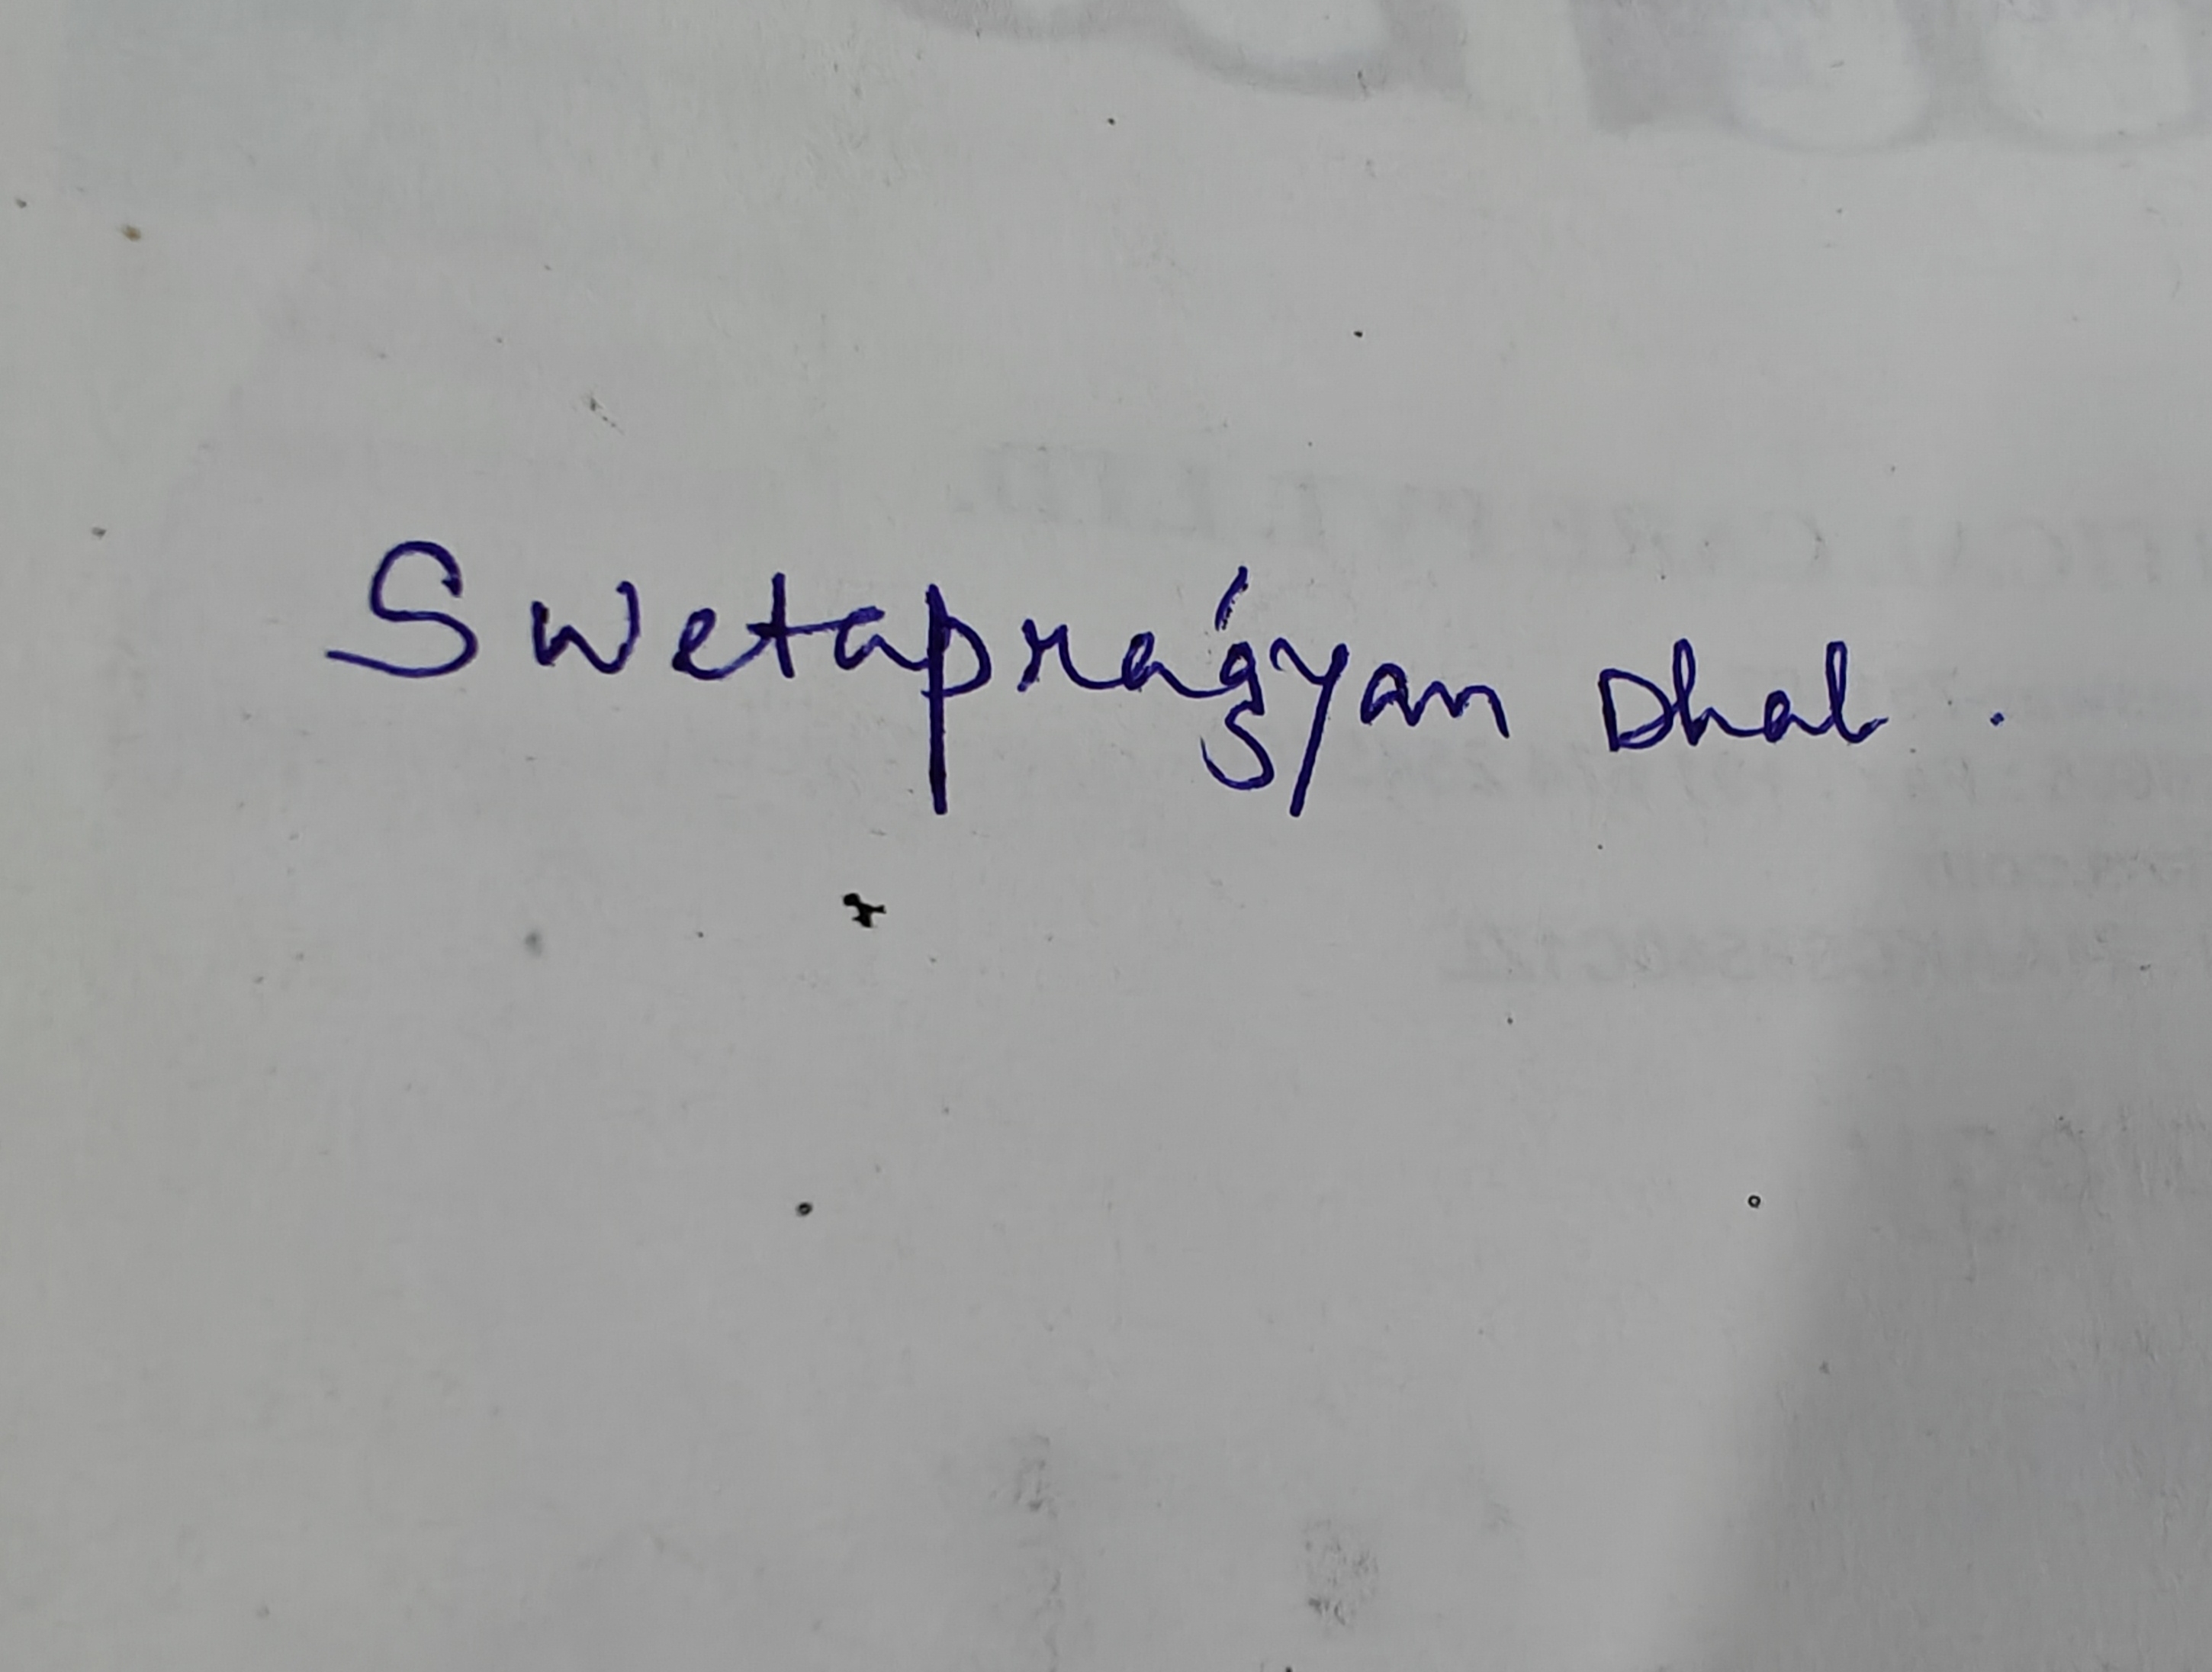 Swetapragyan Dhal.